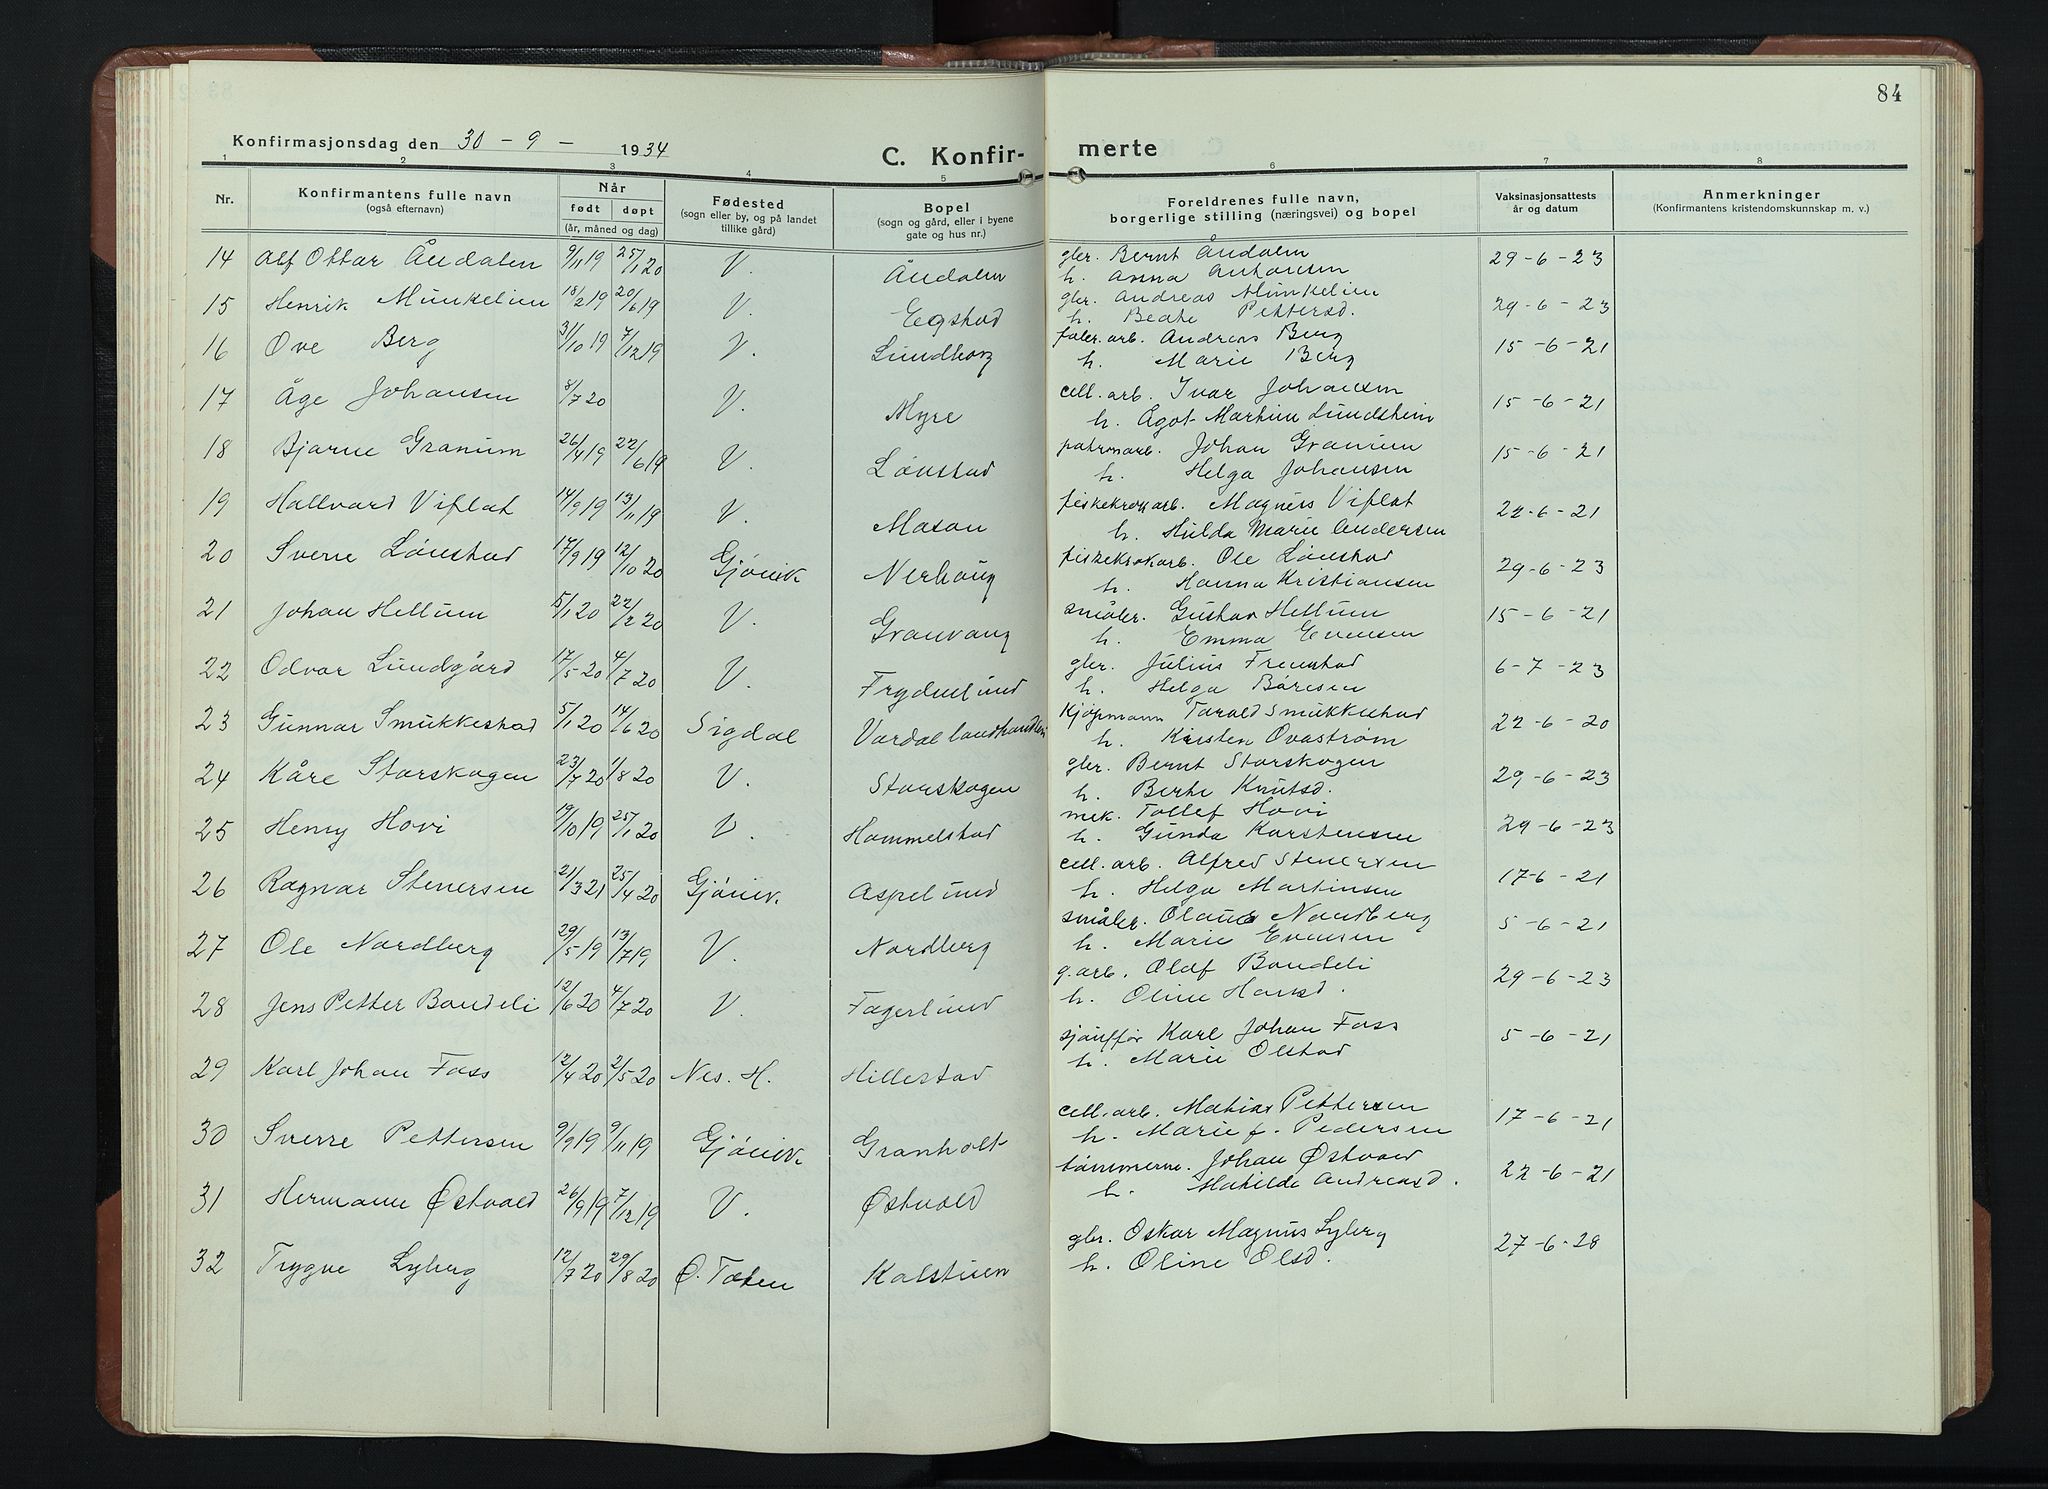 84
Konfirmasjonsdag den 30 - 9 - 1934
C. Konfir- merte
1 2 3 4 5 6 7 8
Nr. Konfirmantens fulle navn (også efternavn) Når født døpt (år, måned og dag) Fødested (sogn eller by, og på landet tillike gård) Bopel (sogn og gård, eller i byene gate og hus nr.) Foreldrenes fulle navn, borgerlige stilling (næringsvei) og bopel Vaksinasjonsattests år og datum Anmerkninger (Konfirmantens kristendomskunnskap m. v.)
14 Alf Ottar Åndalen 9/11 19 25/1 20 V. Åndalen gbr. Bernt Åndalen 29-6-23
h. Anna Antonsen
15 Henrik Munkelien 18/2 19 20/6 19 V. Egstad gbr. Andreas Munkelien 29-6-23
h. Beate Pettersd.
16 Ove Berg 31/10 19 7/12 19 V. Lundborg arb. Andreas Berg 15-6-21
h. Marie Berg
17 Åge Johansen 8/7 20 V. Myre cell. arb. Ivar Johansen 15-6-21
h. Ågot Martine Lundsheim
18 Bjarne Granum 26/4 19 22/6 19 V. Lønstad patronarb. Johan Granum 15-6-21
h. Helga Johansen
19 Hallvard Viflat 14/9 19 13/11 19 V. Mason fiskekrokarb. Magnus Viflat 22-6-21
h. Hilda Marie Andersen
20 Sverre Lønstad 17/9 19 12/10 20 Gjøvik Nerhaug fiskekrokarb. Ole Lønstad 29-6-23
h. Hanna Kristiansen
21 Johan Hellum 5/1 20 22/2 20 V. Granvang småbr. Gustav Hellum 15-6-21
h. Emma Evensen
22 Odvar Lundgård 17/5 20 4/7 20 V. Frydenlund gbr. Julius Fremstad 6-7-23
h. Helga Båresen
23 Gunnar Smukkestad 5/1 20 14/6 20 Sigdal Vardal landhandleri Kjøpmann Tarald Smukkestad 22-6-20
h. Kirsten Ovastrøm
24 Kåre Storskogen 23/7 20 1/8 20 V. Storskogen gbr. Bernt Storskogen 29-6-23
h. Berte Knutsd.
25 Henry Hovi 19/10 19 25/1 20 V. Hammelstad mek. Tollef Hovi 29-6-23
h. Gunda Karstensen
26 Ragnar Stenersen 21/3 21 25/4 20 Gjøvik. Aspelund cell. arb. Alfred Stenersen 17-6-21
h. Helga Martinsen
27 Ole Nordberg 29/5 19 13/7 19 V. Nordberg småbr. Olaus Nordberg 5-6-21
h. Marie Evensen
28 Jens Petter Bondeli 12/6 20 4/7 20 V. Fagerlund g.arb. Olaf Bondeli 29-6-23
h. Oline Hansd.
29 Karl Johan Foss 12/4 20 2/5 20 Nes. H. Hillestad sjåuffør Karl Johan Foss 5-6-21
h. Marie Olstad
30 Sverre Pettersen 9/9 19 9/11 19 Gjøvik Granholt cell. arb. Mathias Pettersen 17-6-21
h. Marie f. Pedersen
31 Hermann Østvold 26/9 19 7/12 19 V. Østvold tømmerm. Johan Østvold 22-6-21
h. Mathilde Andreasd.
32 Trygve Lyberg 12/7 20 29/8 20 Ø. Toten Kalstuen gbr. Oskar Magnus Lyberg 27-6-28
h. Oline Olsd.